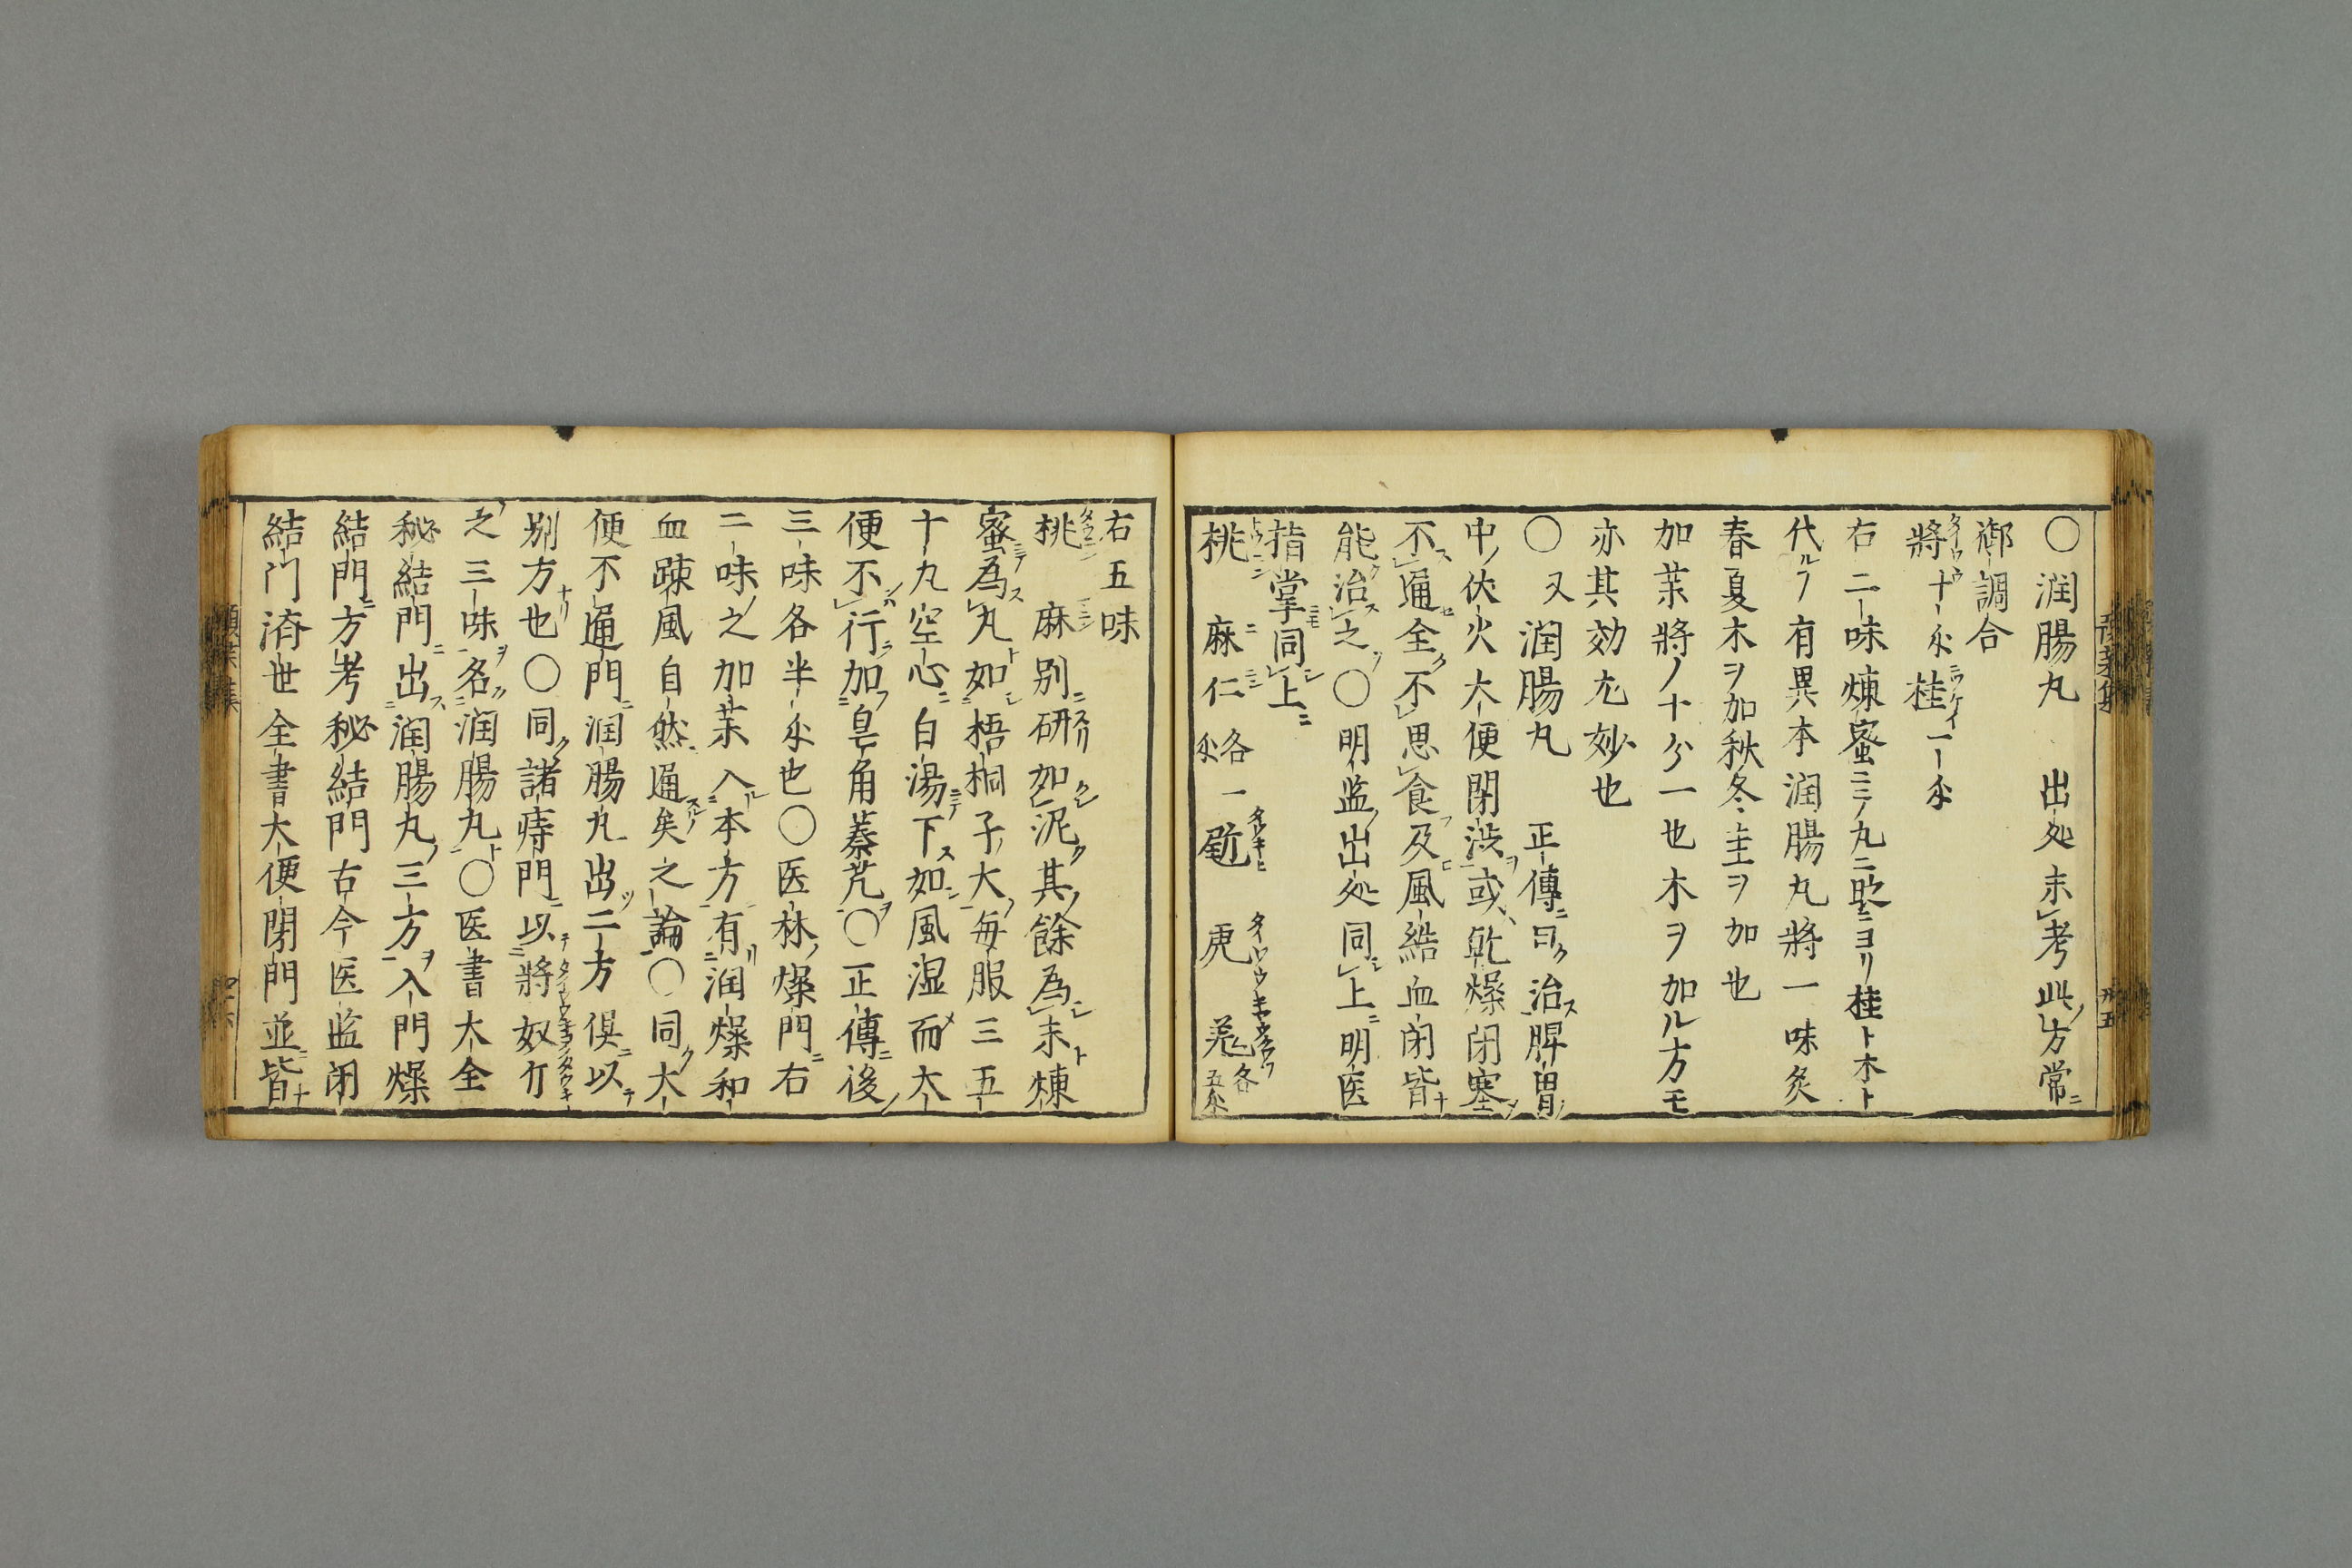 ○潤腸丸　出処未考此方常ニ
御調合
将十两桂一两
右二味煉蜜ニテ丸ニ時ニヨリ桂ト木ト
代ルフ有異本潤腸丸将一味炙
春夏木ヲ加秋冬圭ヲ加也
加葉将ノ十分一也木ヲ加ル方モ
亦其効尤妙也
○又潤腸丸　正傳ニ曰ク治ス脾胃ノ
中ノ伏火大便閉渋ヲ或ハ乾燥闭塞ノ
不通全ク不思食及風結血闭皆ナ
能治ス之ヲ○明监ノ出処同シ上ニ明医
指掌ニモ同シ上ニ
桃　麻仁各一两　尾　各五
右五味
桃　麻別ニ研如泥其ノ餘為末ト煉
蜜ニテ為ス丸ト如シ梧桐子ノ大ノ毎服三五
十丸空心ニ白湯ニテ下ス如シ風湿而大
便不行加フ皂角蓁艽ヲ○正傳ニ後ノ
三味各半两也○医林ノ燥門ニ右
二味ノ之加葉入ル本方ニ有リ潤燥和
血踈風自然通スルノ矣之論○同ク大
便不通門ニ潤腸丸出ツ二方俱ニ以テ
別方ナリ也○同ク諸痔門ニ以テ将奴
之三味ヲ名ク潤腸丸ト○医書大全
秘結門ニ出ス潤腸丸ノ三方ヲ入門燥
結門ニ方考秘結門古今医监闭
結門済世全書大便閉門並ニ皆ナ